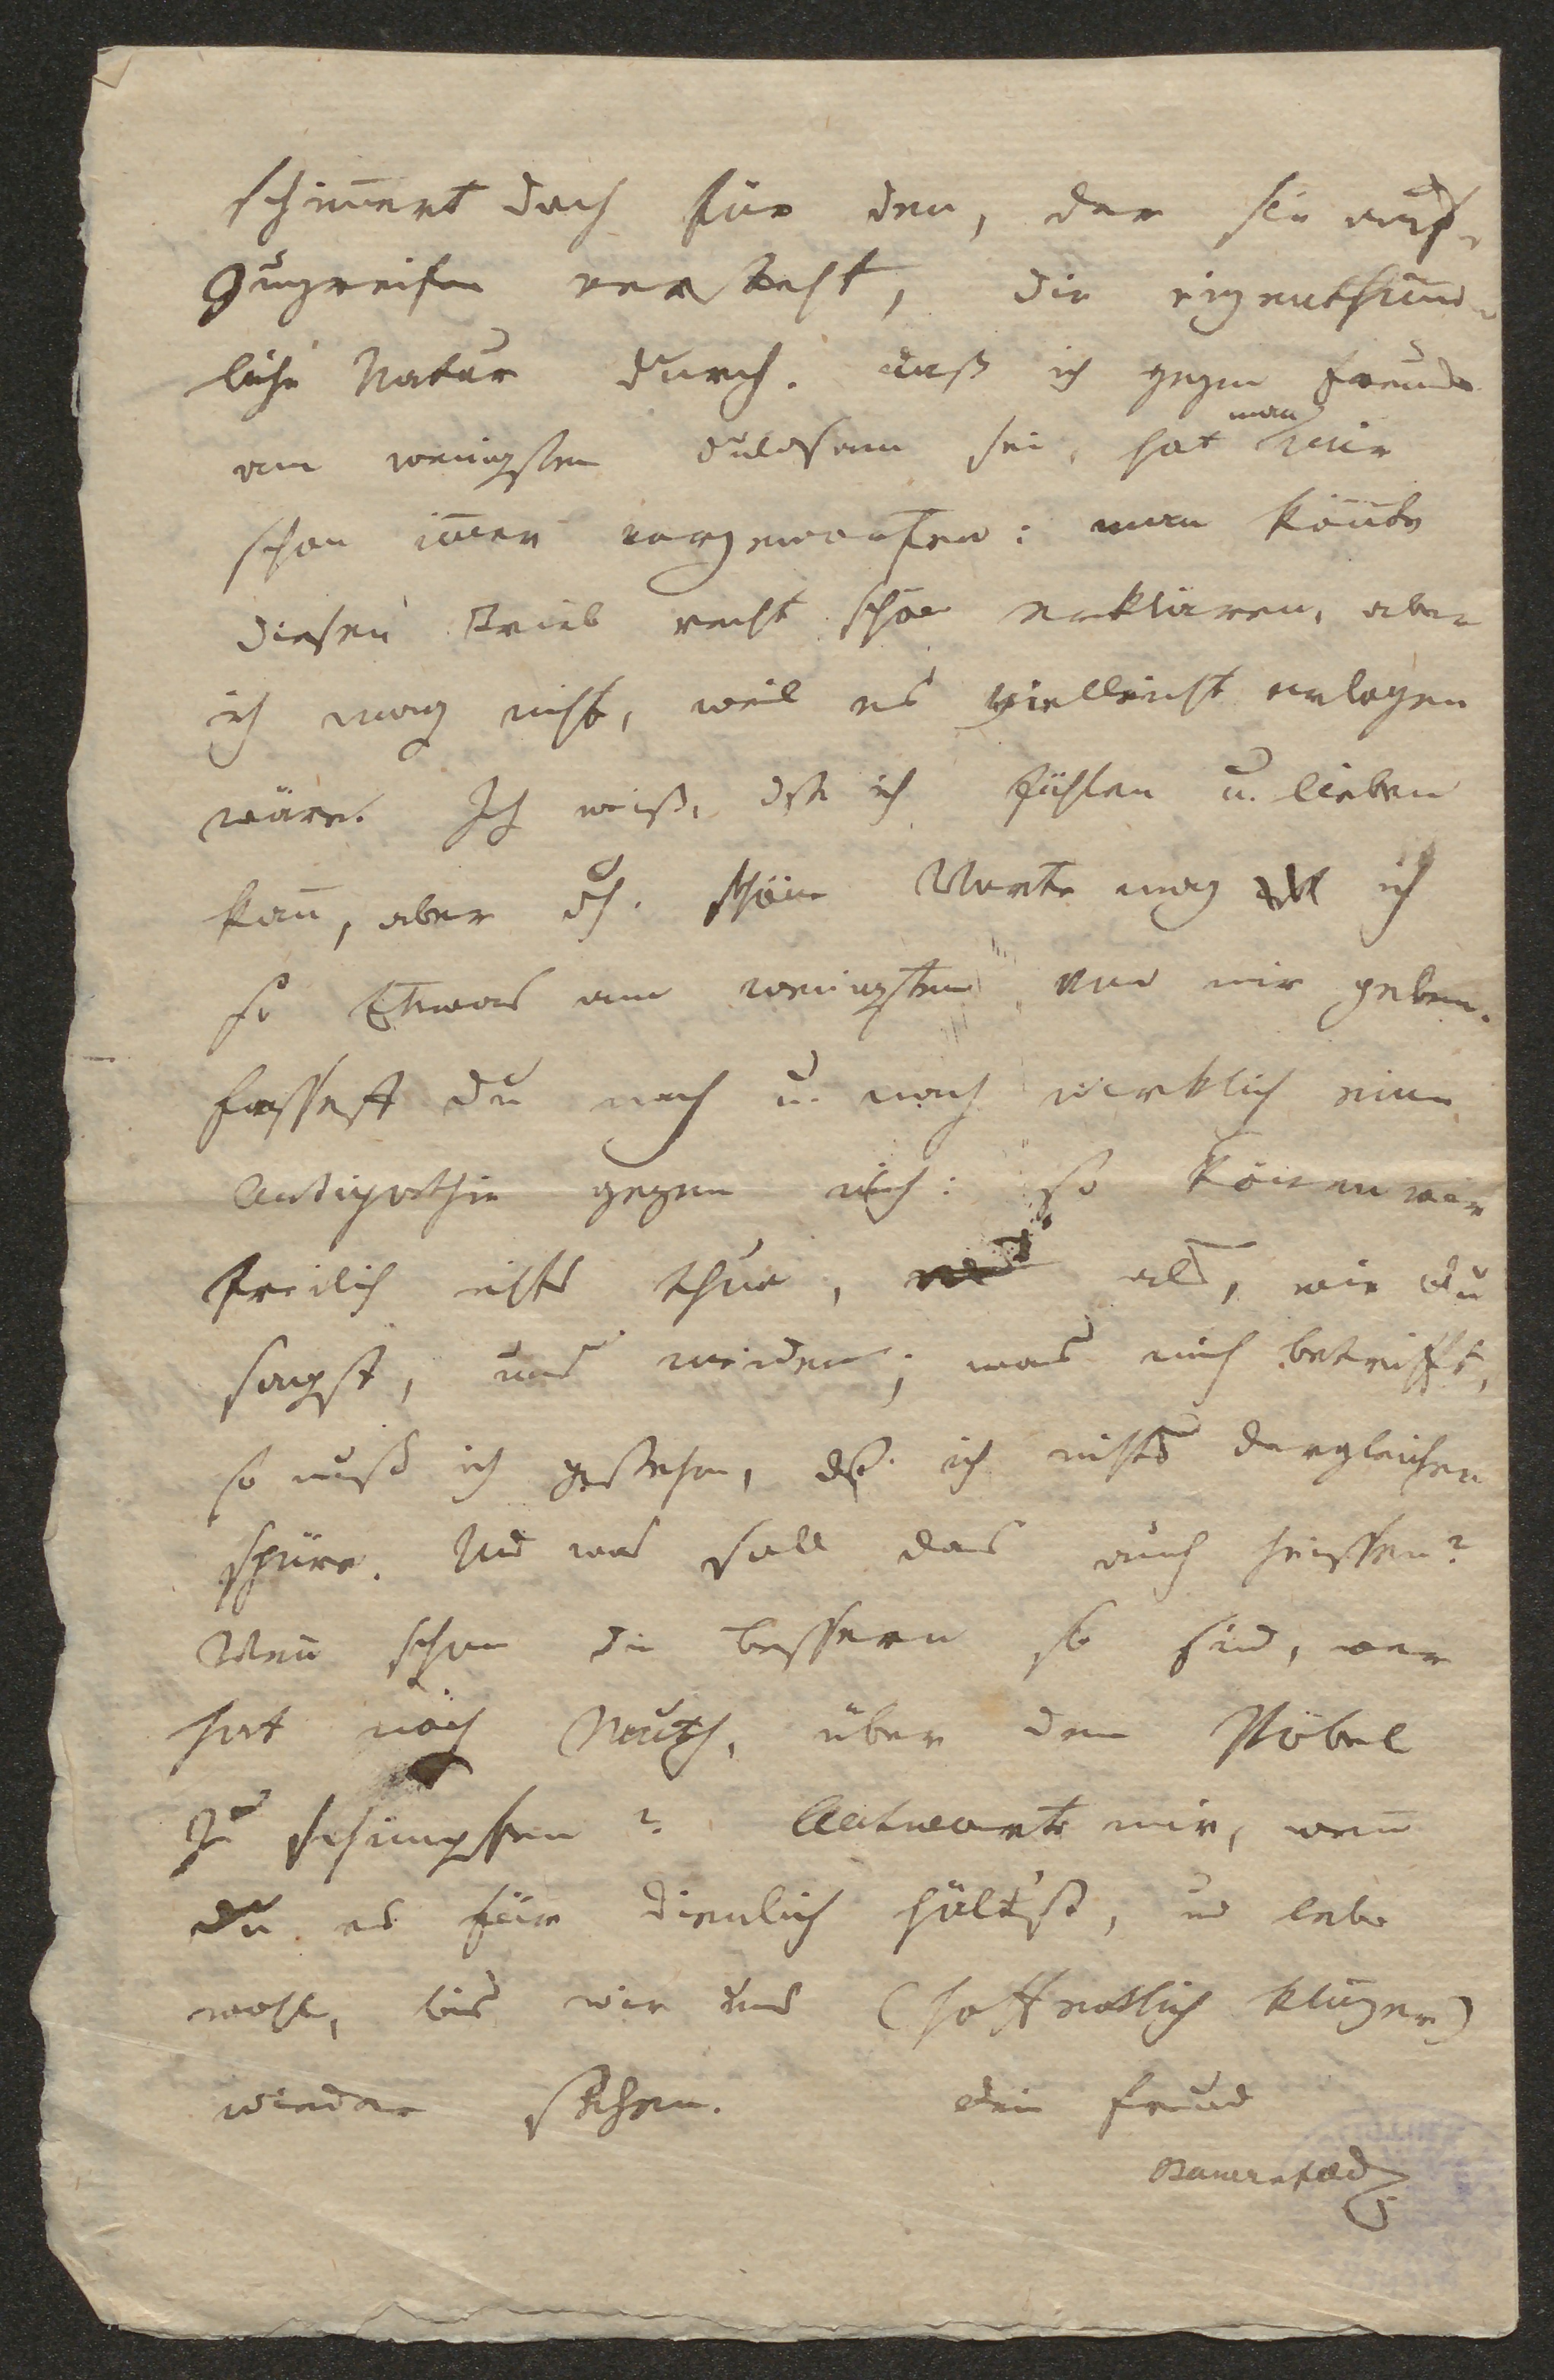 schim̅ert doch für den, der sie auf-
zugreifen versteht, die eigenthüm-
liche Natur durch. Daß ich gegen Freunde
am wenigsten duldsam sei, hat man mir
schon im̅er vorgeworfen: man kön̅te
diesen Trieb recht schön erklären, aber
ich mag nicht, weil es vielleicht erlogen
wäre. Ich weiß, dß ich fühlen u. lieben
kan̅, aber dh. schöne Worte mag ich
so Etwas am wenigsten von mir geben.
Fassest du nach u. nach wirklich eine
Antipathie gegen mich: so kön̅en wir
freilich nichts thun, als, wie du
sagst, uns meiden; was mich betrifft,
so muß ich gestehen, dß. ich nichts dergleichen
spüre. Und was soll das auch heissen?
Wen̅ schon die bessern so sind, wer
hat noch Muth, über den Pöbel
zu schimpfen? Antworte mir, wen̅
du es für dienlich hältst, und lebe
wohl, bis wir uns (hoffentlich klüger)
wieder sehen. Dein Freund
Bauernfeld